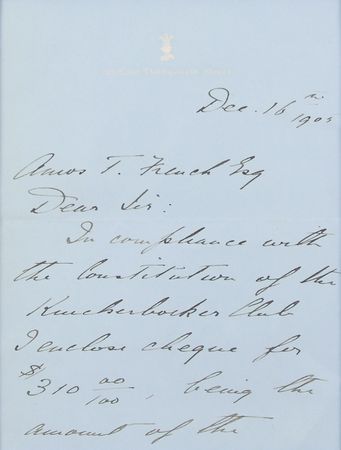 Dec. 16th
Amos T. French Esq
Dear Sir:
In compliance with
the Constitution of the
Knickerbocker Club
I enclose cheque for
$310 00/100, being the
amount of the